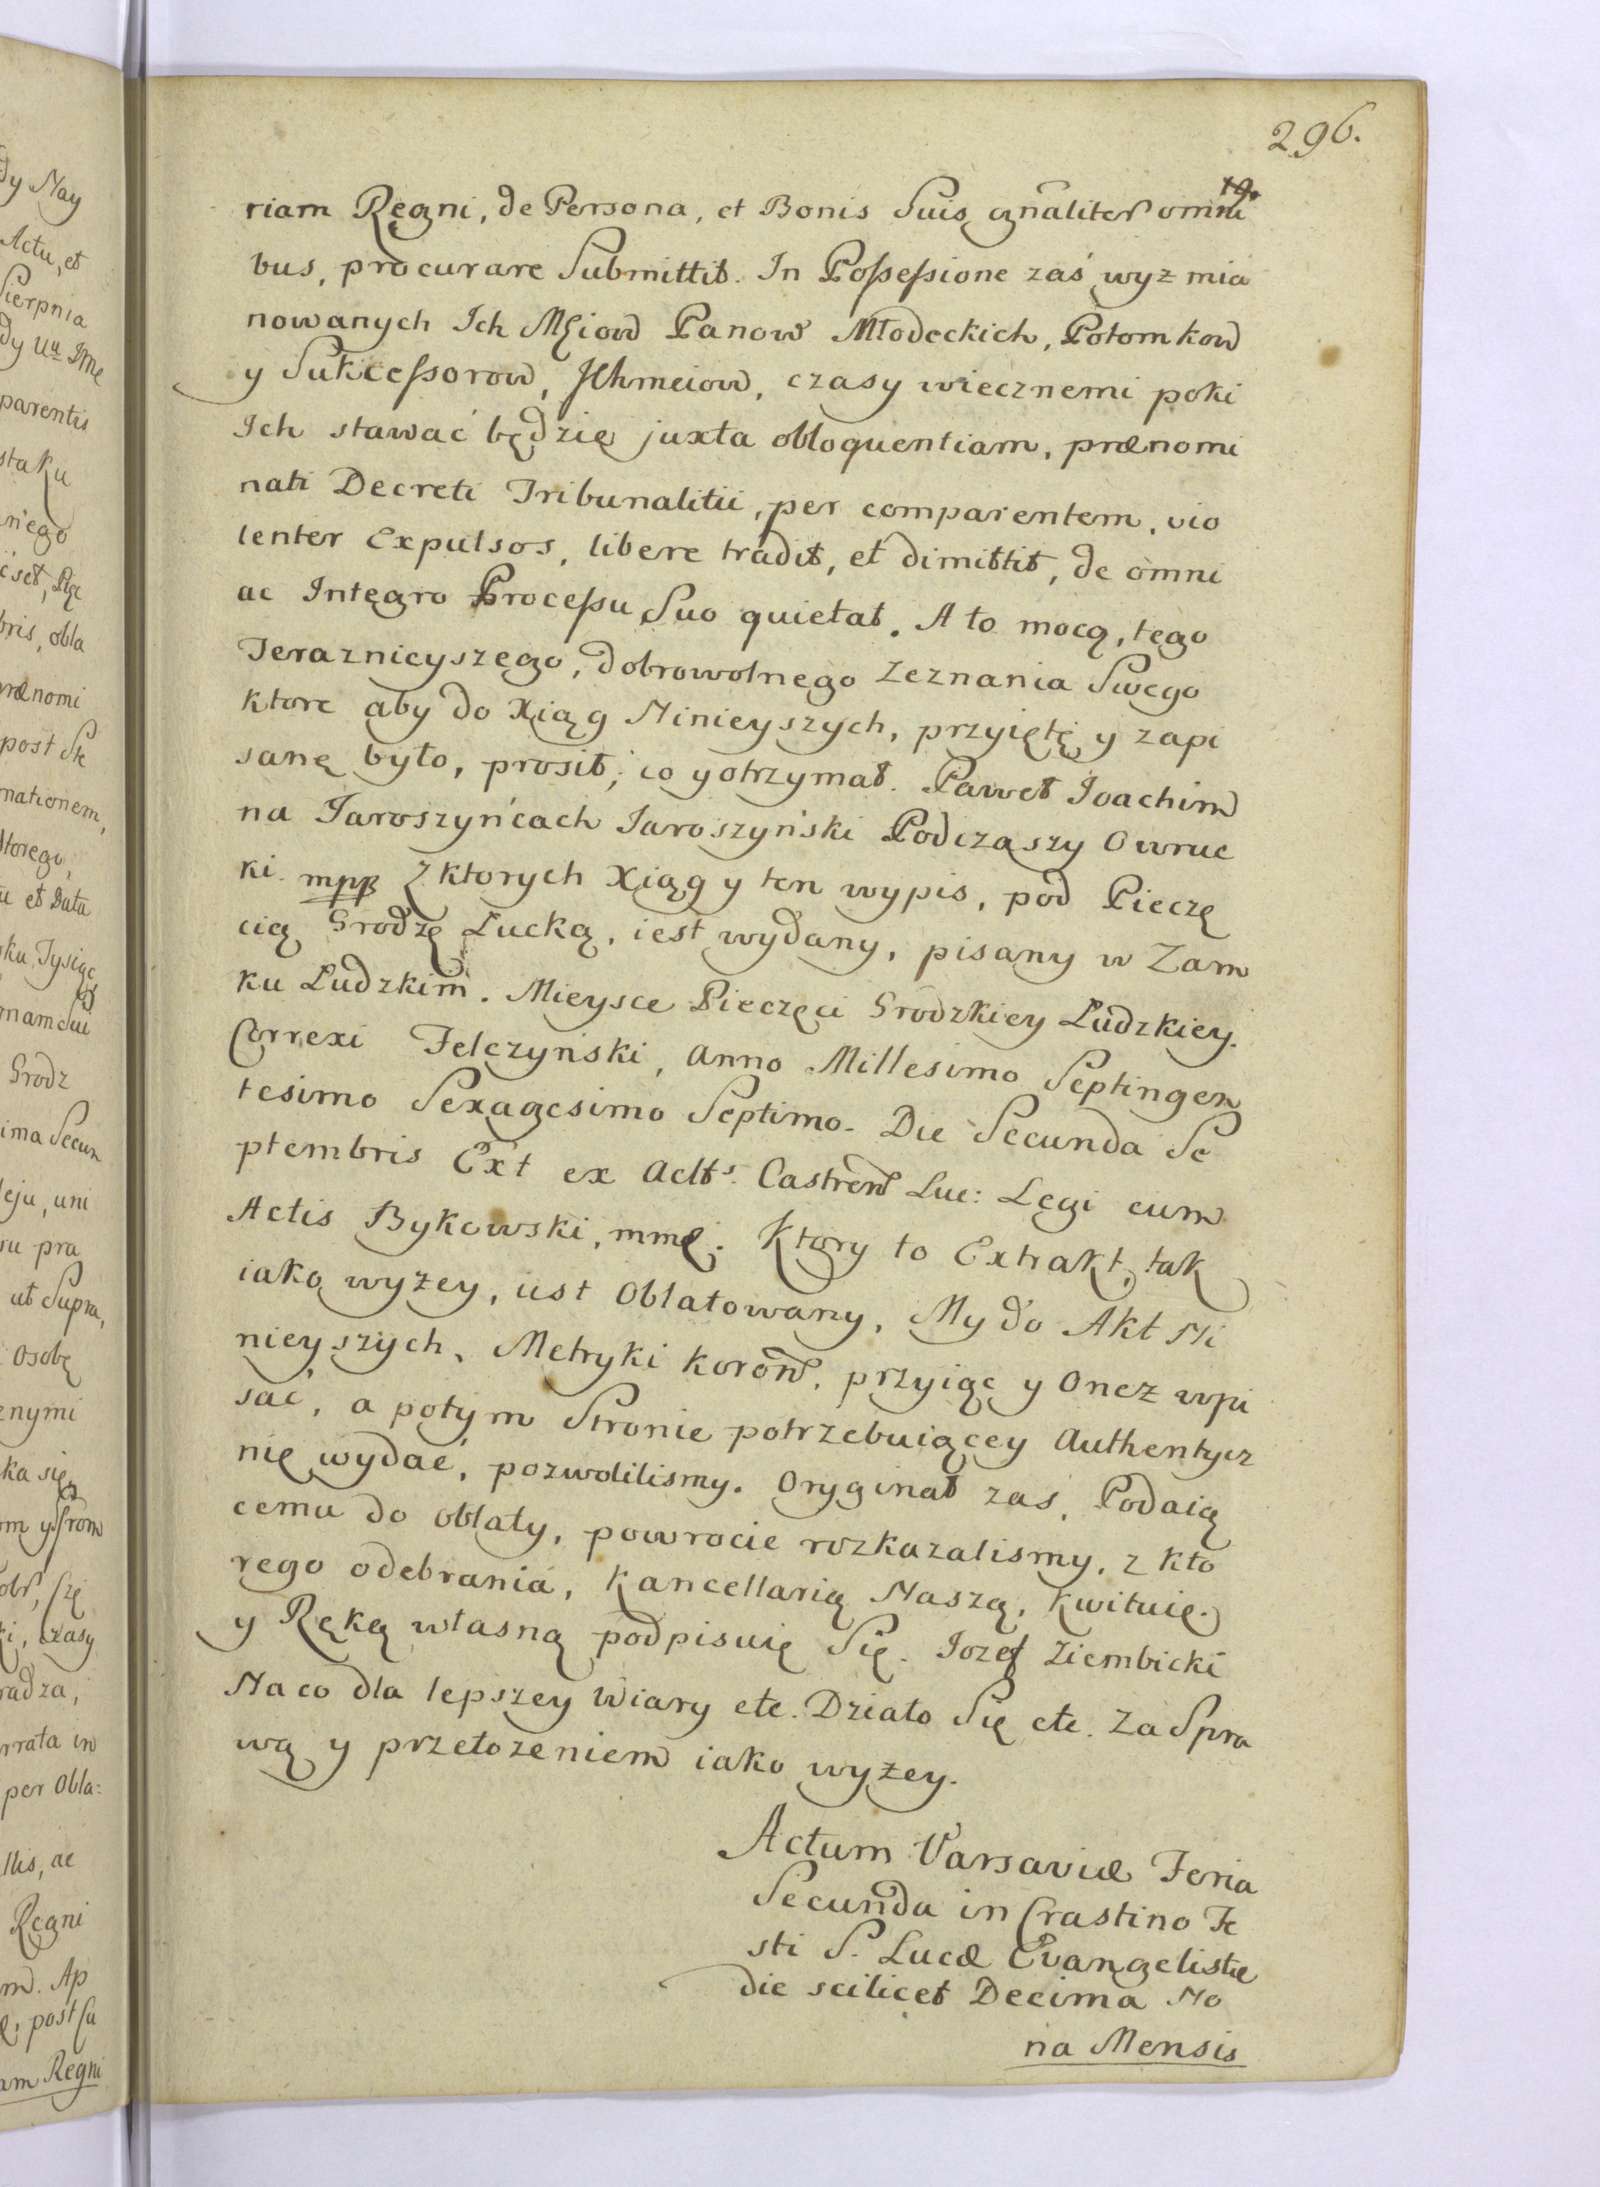 296.
riam Regni, de Persona, et Bonis Suis gnaliter omni
bus, procurare Submittit. In Possessione zaś wyż mia
nowanych Ich Mściow Panow Młodeckich, Potomkow
y Sukcessorow, Ichmciow, czasy wiecznemi poki
Ich stawać będzie juxta obloquentiam, prænomi
nati Decreti Tribunalitii, per comparentem, vio
lenter Expulsos, libere tradit, et dimittit, de omni
ac Integro Processu Suo quietat. A to mocą, tego
Teraznieyszego, dobrowolnego Zeznania Swego
ktore aby do Xiąg Ninieyszych, przyięte y zapi
sane było, prosił, co y otrzymał. Paweł Joachim
na Jaroszyńcach Jaroszyński Podczaszy Owruc
ki. mpp Z ktorych Xiąg y ten wypis, pod Pieczę
cią Grodzę Łucką, iest wydany, pisany w Zam
ku Łudzkim. Mieysce Pieczęci Grodzkiey Łudzkiey.
Correxi Felczyński, Anno Millesimo Septingen
tesimo Sexagesimo Septimo. Die Secunda Se
ptembris Ext ex Actts. Castren Luc: Legi cum
Actis Bykowski, mmę. Ktory to Extrakt, tak
iako wyżey, iest Oblatowany, My do Akt Ni
nieyszych, Metryki Koron, przyiąc y Onez wpi
sać, a potym Stronie potrzebuiącey Authentycz
nie wydać, pozwolilismy. Oryginał zas, Podaią
cemu do oblaty, powrocic rozkazalismy, z kto
rego odebrania, Kancellarią Naszą, kwituie.
y Ręką własną podpisuie Się. Jozef Ziembicki
Na co dla lepszey Wiary etc. Działo Się etc. Za Spra
wą y przełozeniem iako wyżey.
Actum Varsaviæ Feria
Secunda in Crastino Fe
sti S. Lucæ Evangelistæ
die scilicet Decima No
na Mensis